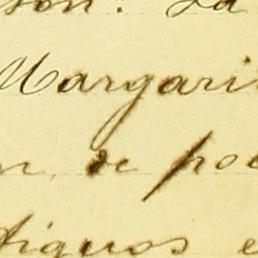 son. La
Margari
n, de pob
tiguos e